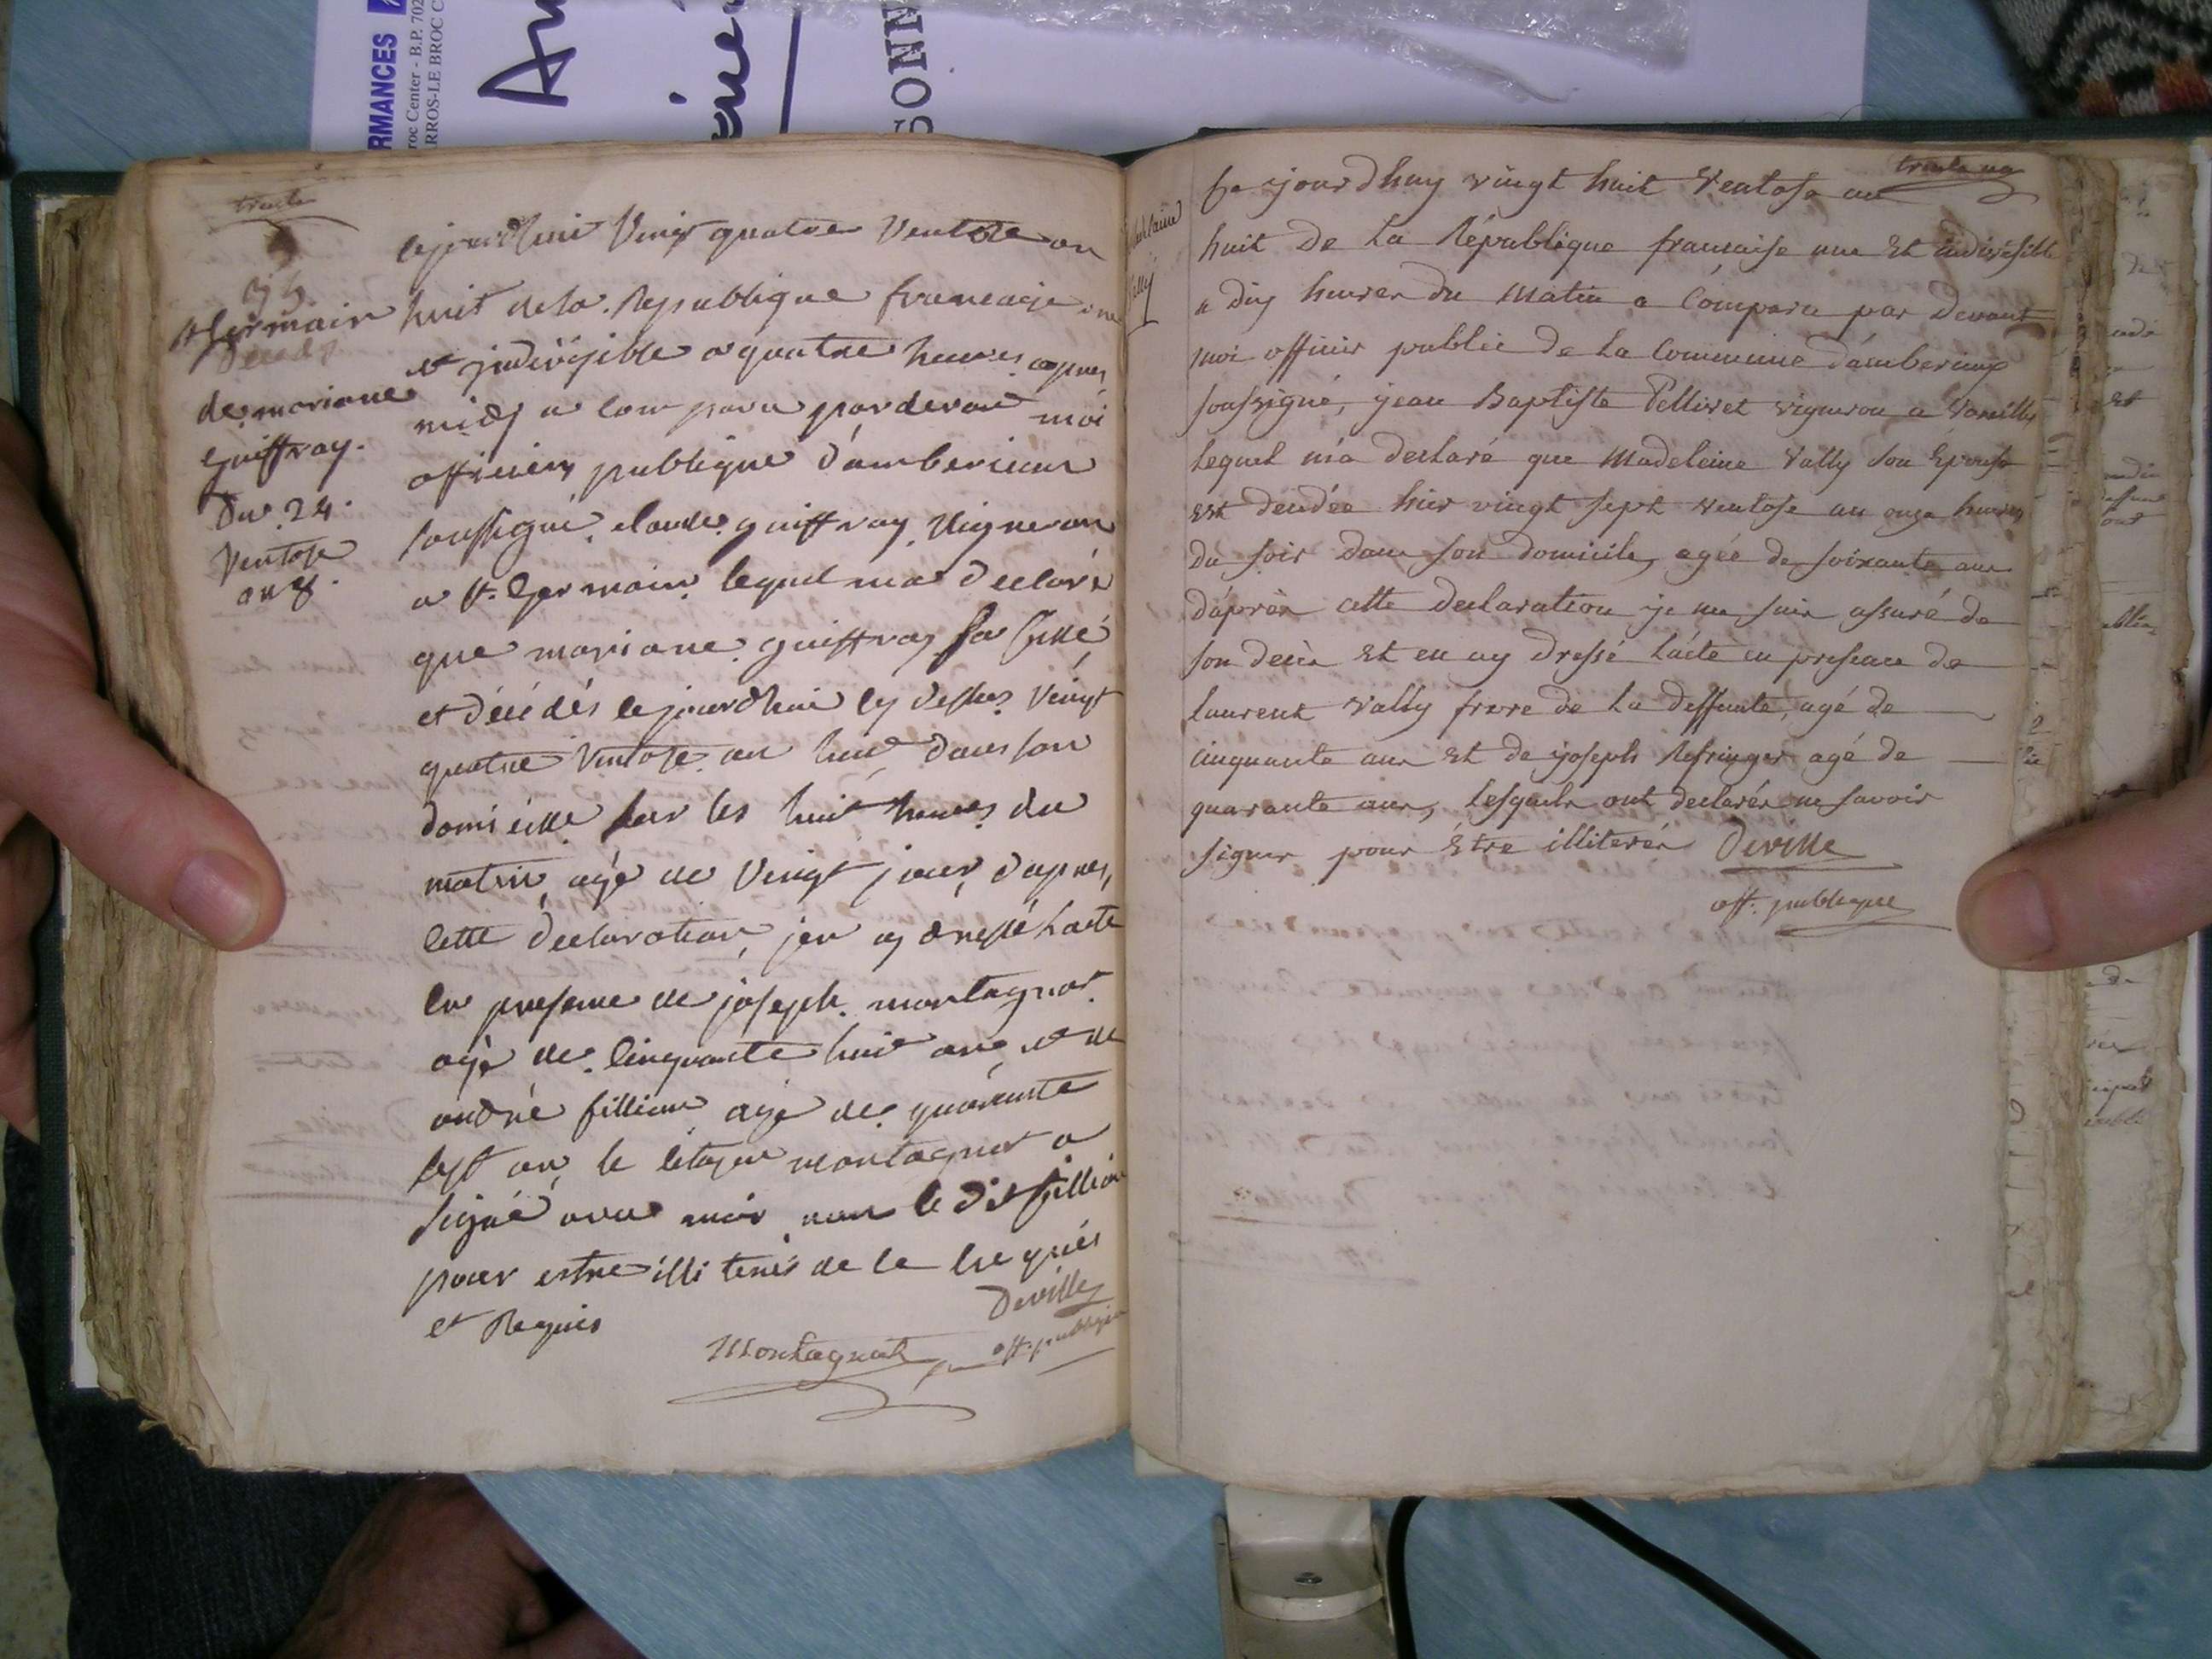 RMANCES
roc Center - B.P. 702
RROS-LE BROC C
SONN
trente
St Germain
de mariane
guiffray.
Du 24.
Ventose
an 8.
cejourdhui Vingt quatre Ventose an
huit de la Republique francaise une
et jndivisible a quatre heures apres
midy a comparu pardevant moi
officiers publique d'amberieux
soussigné, claude guiffray, Vigneron
a st. Germain, lequel ma declaré
que mariane guiffray sa fille
et décédés cejourdhui cy dessus Vingt
quatre Ventose an huit dans son
domicille sur les huit heures du
matin, agé de Vingt jour, dapres,
cette declaration, jen ay dressé lacte
en presence de joseph montagnat
agé de cinquante huit ans, et de
andré fillion agé de quarente
sept an, le citoyen montagnat a
signé avec moi non le dit fillion
pour estre illiterés de ce enquis
et Requis
Montagnat
Deville
off. publique
trente un
Ce ijourdhuy vingt huit Ventose an
huit De La République francaise une Et indivisible
a dix heures du Matin a Comparu par Devant
moi officier public De La Commune d'amberieux
soussigné, jean Baptiste Pellivet vigneron a Vareilles
Lequel m'a declaré que Madeleine Vally son Epouse
est decedée hier vingt sept Ventose au onze heures
du soir dans son domicile, agée de soixante ans
d'après cette declaration je me suis assuré de
son decès Et en ay dressé l'acte en presence de
Laurent Vally frere de La deffunte, agé de
cinquante ans Et de joseph Refringer agé de
quarante ans, Lesquels ont declarés ne savoir
signer pour Être illiterés Deville
off. publique